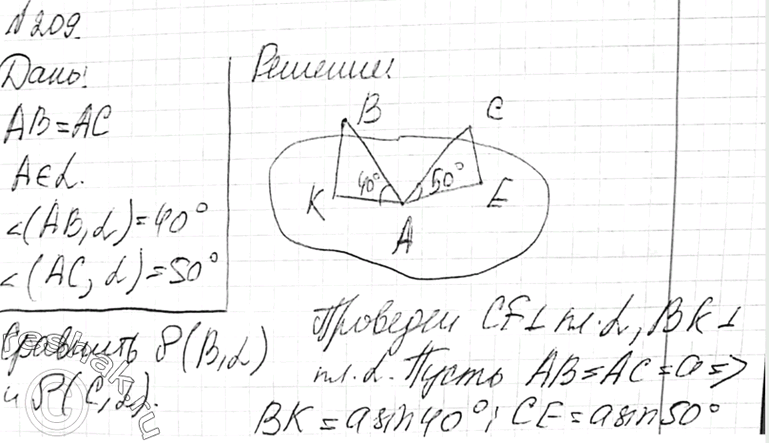 №209.
Дано:
AB=AC
A∈α.
∠(AB,α)=40°
∠(AC,α)=50°
Сравнить ρ(B,α)
и ρ(C,α).
Решение:
B
C
40°
50°
K
E
A
Проведем CE⊥ пл.α, BK⊥
пл.α. Пусть AB=AC=a=>
BK=a sin40°; CE=a sin50°
reshak.ru